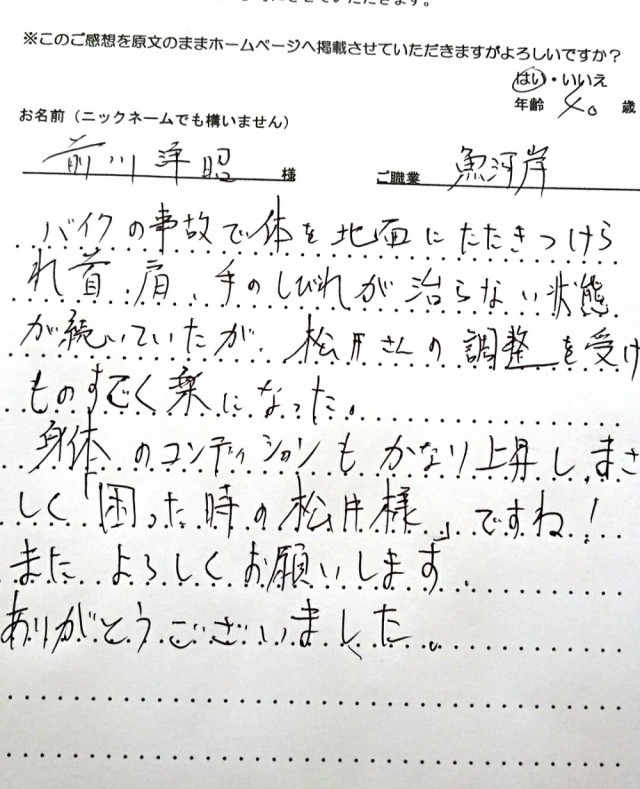 させていただきます。
※このご感想を原文のままホームページへ掲載させていただきますがよろしいですか？
はい・いいえ
年齢 40 歳
お名前（ニックネームでも構いません）
前川洋昭 様 ご職業 魚河岸
バイクの事故で体を地面にたたきつけら
れ首、肩、手のしびれが治らない状態
が続いていたが、松井さんの調整を受け
ものすごく楽になった。
身体のコンディションもかなり上昇し、まさ
しく「困った時の松井様」ですね！
また よろしくお願いします。
ありがとうございました。